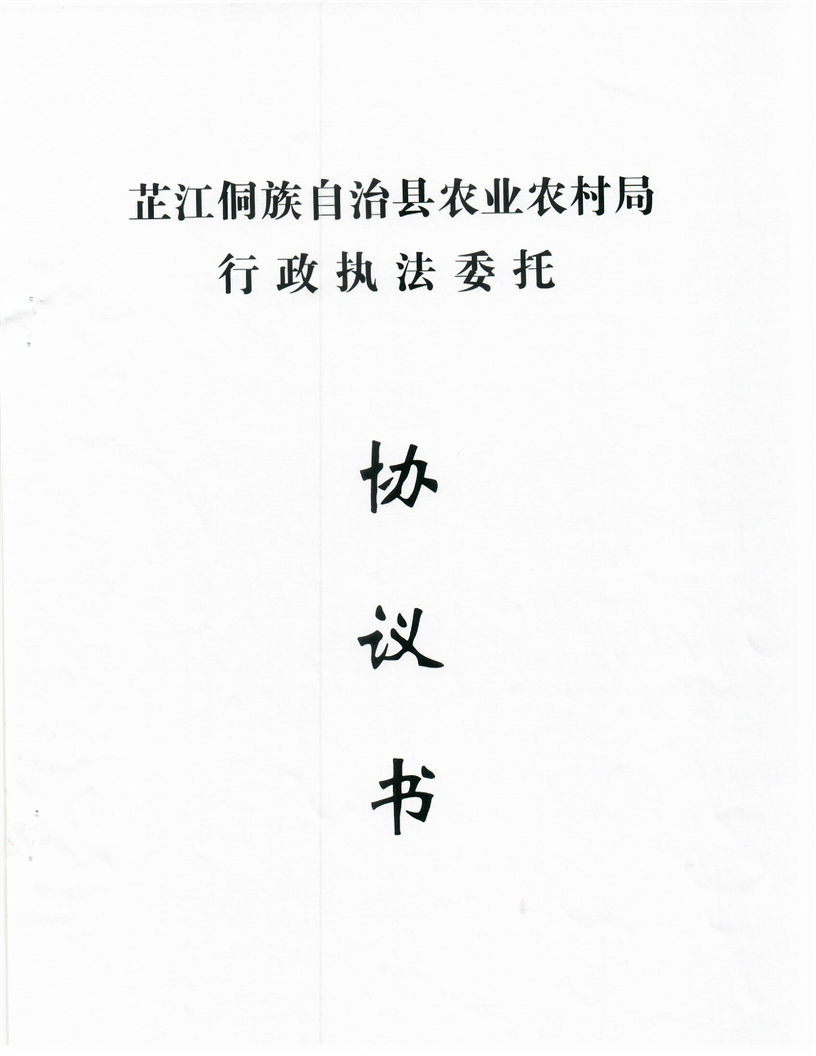 芷江侗族自治县农业农村局
行政执法委托
协
议
书